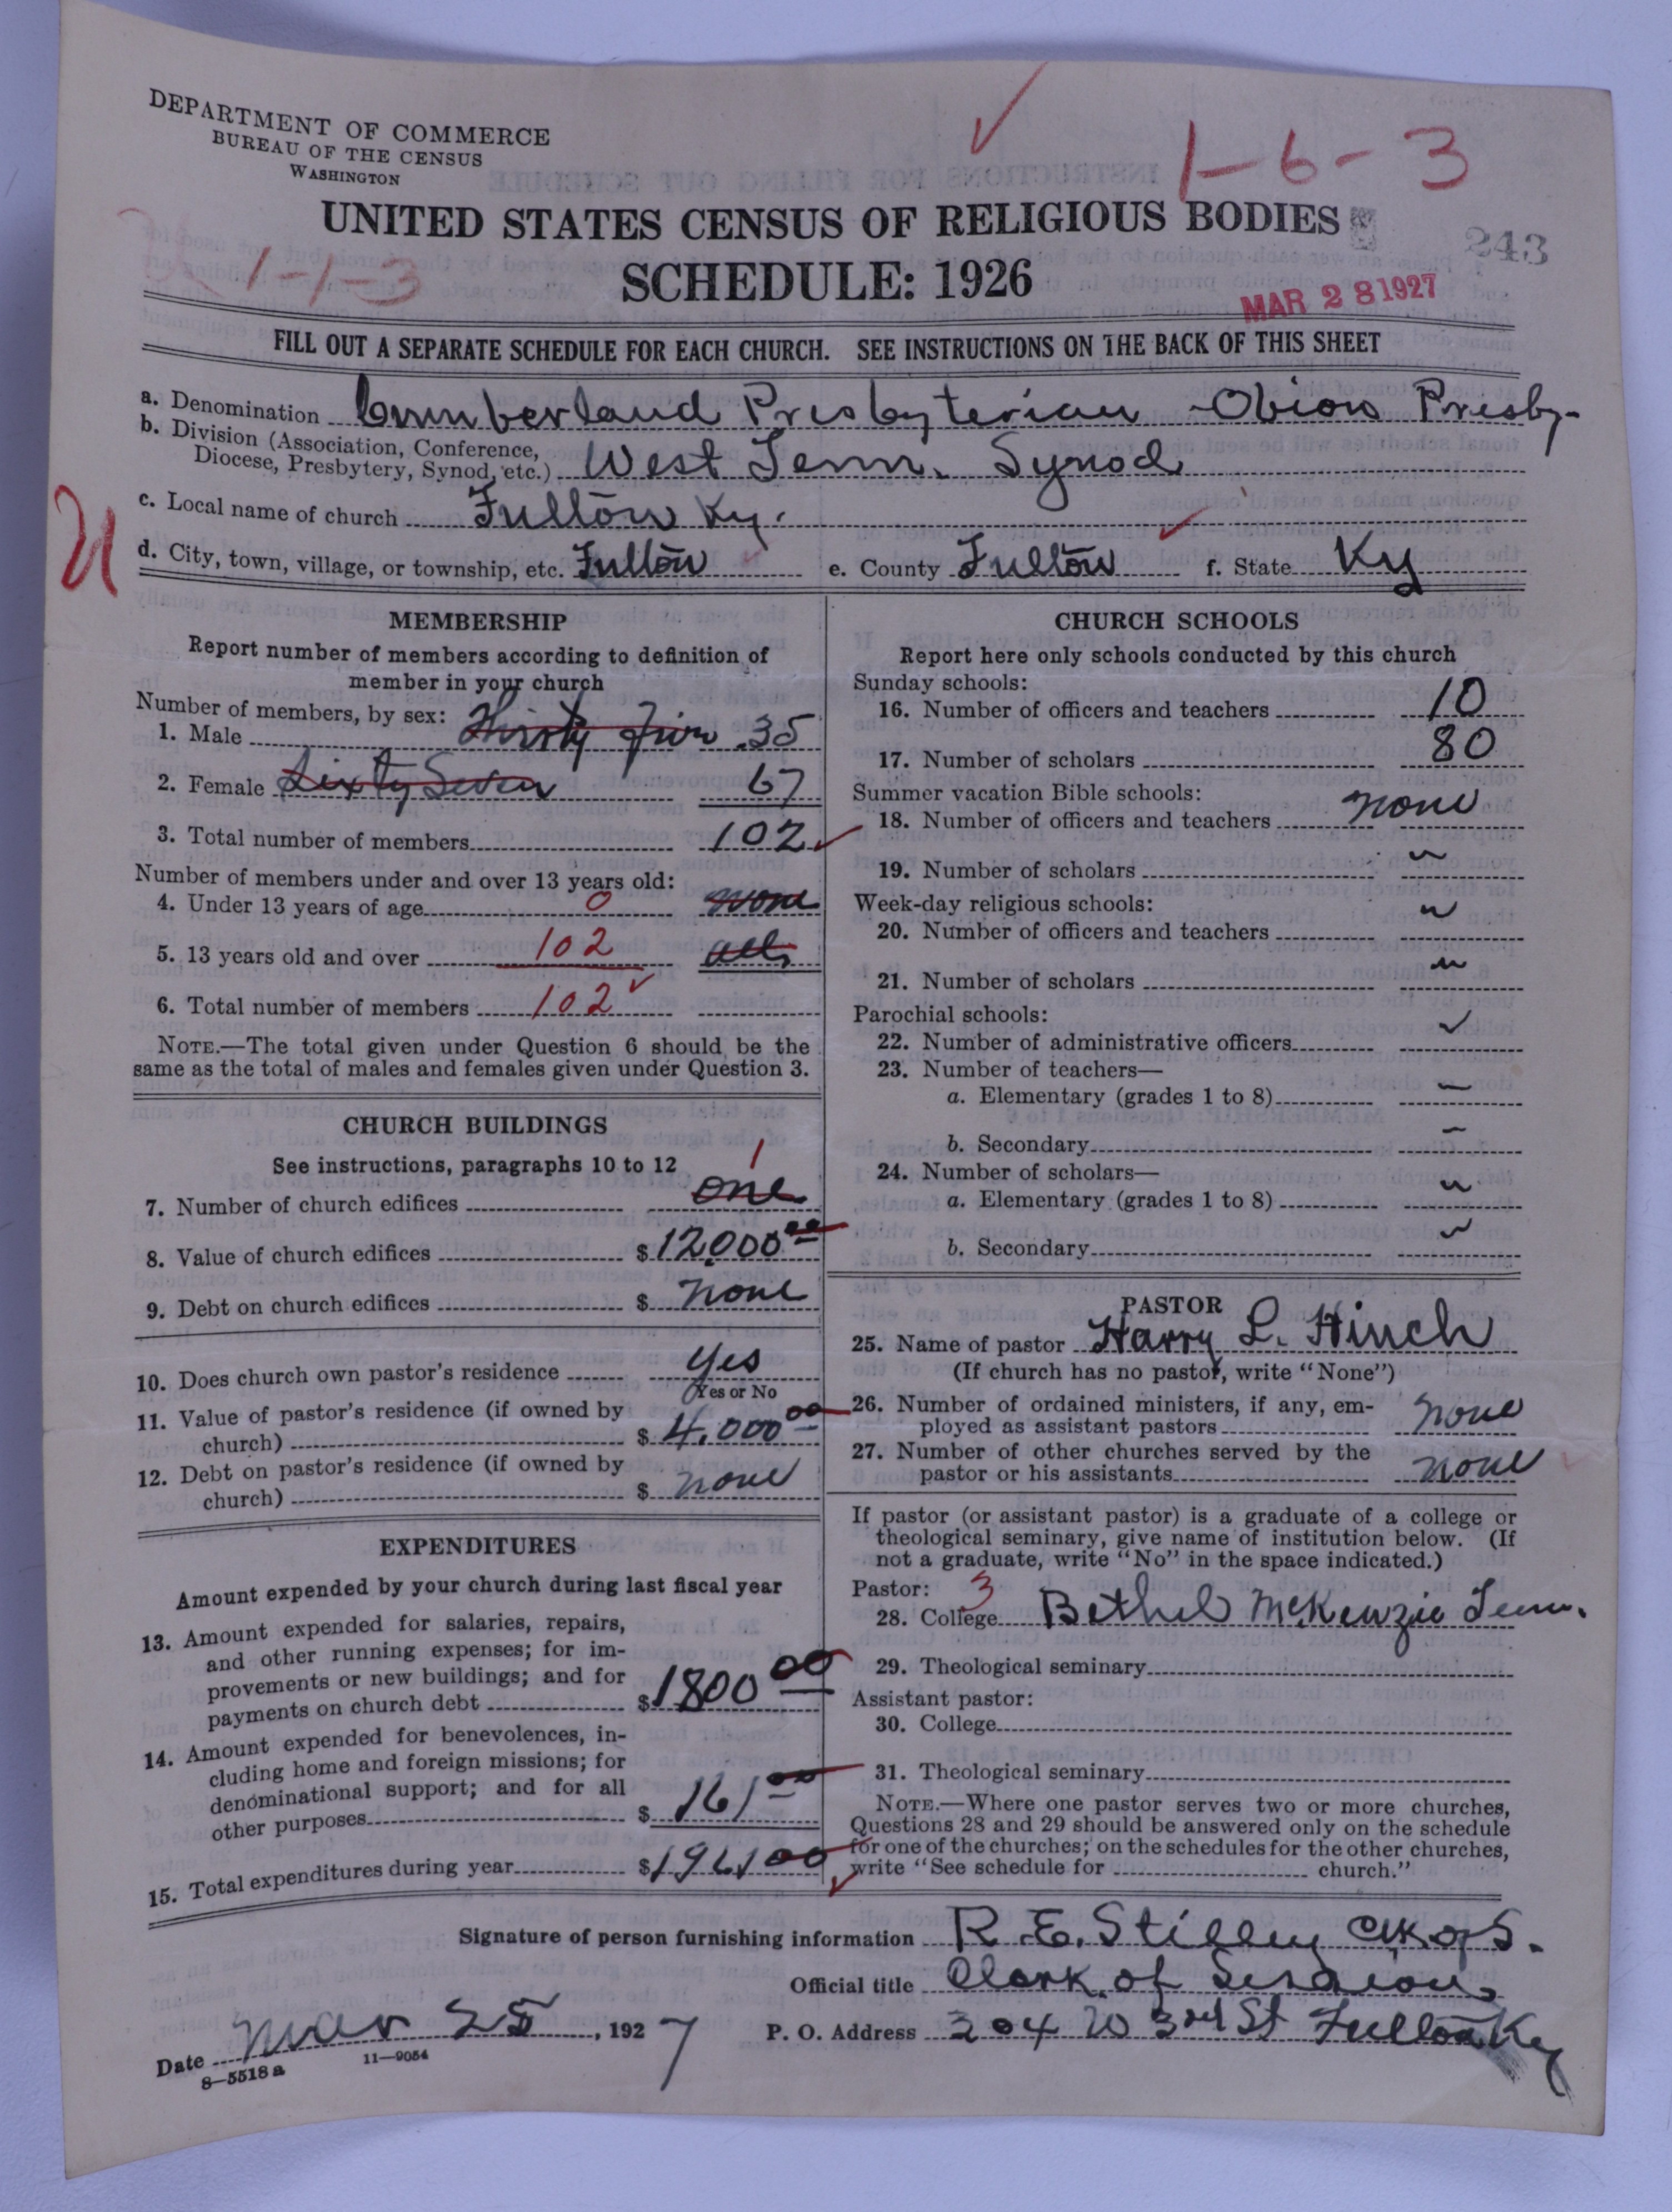 DEPARTMENT OF COMMERCE
BUREAU OF THE CENSUS
WASHINGTON
1-6-3
UNITED STATES CENSUS OF RELIGIOUS BODIES
243
1-1-3
SCHEDULE: 1926
MAR 28 1927
FILL OUT A SEPARATE SCHEDULE FOR EACH CHURCH. SEE INSTRUCTIONS ON THE BACK OF THIS SHEET
a. Denomination Cumberland Presbyterian -Obion Presby-
b. Division (Association, Conference,
Diocese, Presbytery, Synod, etc.) West Tenn. Synod
c. Local name of church Fulton Ky.
d. City, town, village, or township, etc. Fulton e. County Fulton f. State Ky
MEMBERSHIP
Report number of members according to definition of
member in your church
Number of members, by sex:
1. Male Thirty Five 35
2. Female Sixty Seven 67
3. Total number of members 102
Number of members under and over 13 years old:
4. Under 13 years of age 0 none
5. 13 years old and over 102 all
6. Total number of members 102
NOTE.—The total given under Question 6 should be the
same as the total of males and females given under Question 3.
CHURCH BUILDINGS
See instructions, paragraphs 10 to 12
1
7. Number of church edifices one
8. Value of church edifices $12000 00
9. Debt on church edifices $ none
10. Does church own pastor's residence yes
Yes or No
11. Value of pastor's residence (if owned by
church) $ 4,000 00
12. Debt on pastor's residence (if owned by
church) $ none
EXPENDITURES
Amount expended by your church during last fiscal year
13. Amount expended for salaries, repairs,
and other running expenses; for im-
provements or new buildings; and for
payments on church debt $1800 00
14. Amount expended for benevolences, in-
cluding home and foreign missions; for
denominational support; and for all
other purposes $ 161 00
15. Total expenditures during year $1961 00
CHURCH SCHOOLS
Report here only schools conducted by this church
Sunday schools:
16. Number of officers and teachers 10
17. Number of scholars 80
Summer vacation Bible schools:
18. Number of officers and teachers none
19. Number of scholars
Week-day religious schools:
20. Number of officers and teachers
21. Number of scholars
Parochial schools:
22. Number of administrative officers
23. Number of teachers—
a. Elementary (grades 1 to 8)
b. Secondary
24. Number of scholars—
a. Elementary (grades 1 to 8)
b. Secondary
PASTOR
25. Name of pastor Harry L. Hinch
(If church has no pastor, write "None")
26. Number of ordained ministers, if any, em-
ployed as assistant pastors none
27. Number of other churches served by the
pastor or his assistants none
If pastor (or assistant pastor) is a graduate of a college or
theological seminary, give name of institution below. (If
not a graduate, write "No" in the space indicated.)
Pastor: 3
28. College Bethel McKenzie Tenn.
29. Theological seminary
Assistant pastor:
30. College
31. Theological seminary
NOTE.—Where one pastor serves two or more churches,
Questions 28 and 29 should be answered only on the schedule
for one of the churches; on the schedules for the other churches,
write "See schedule for church."
Signature of person furnishing information R.E. Stilley Clk of S.
Official title Clerk of Session
Date Mar 25, 1927 P. O. Address 304 W 3rd St Fulton Ky
8—5518 a 11—9054